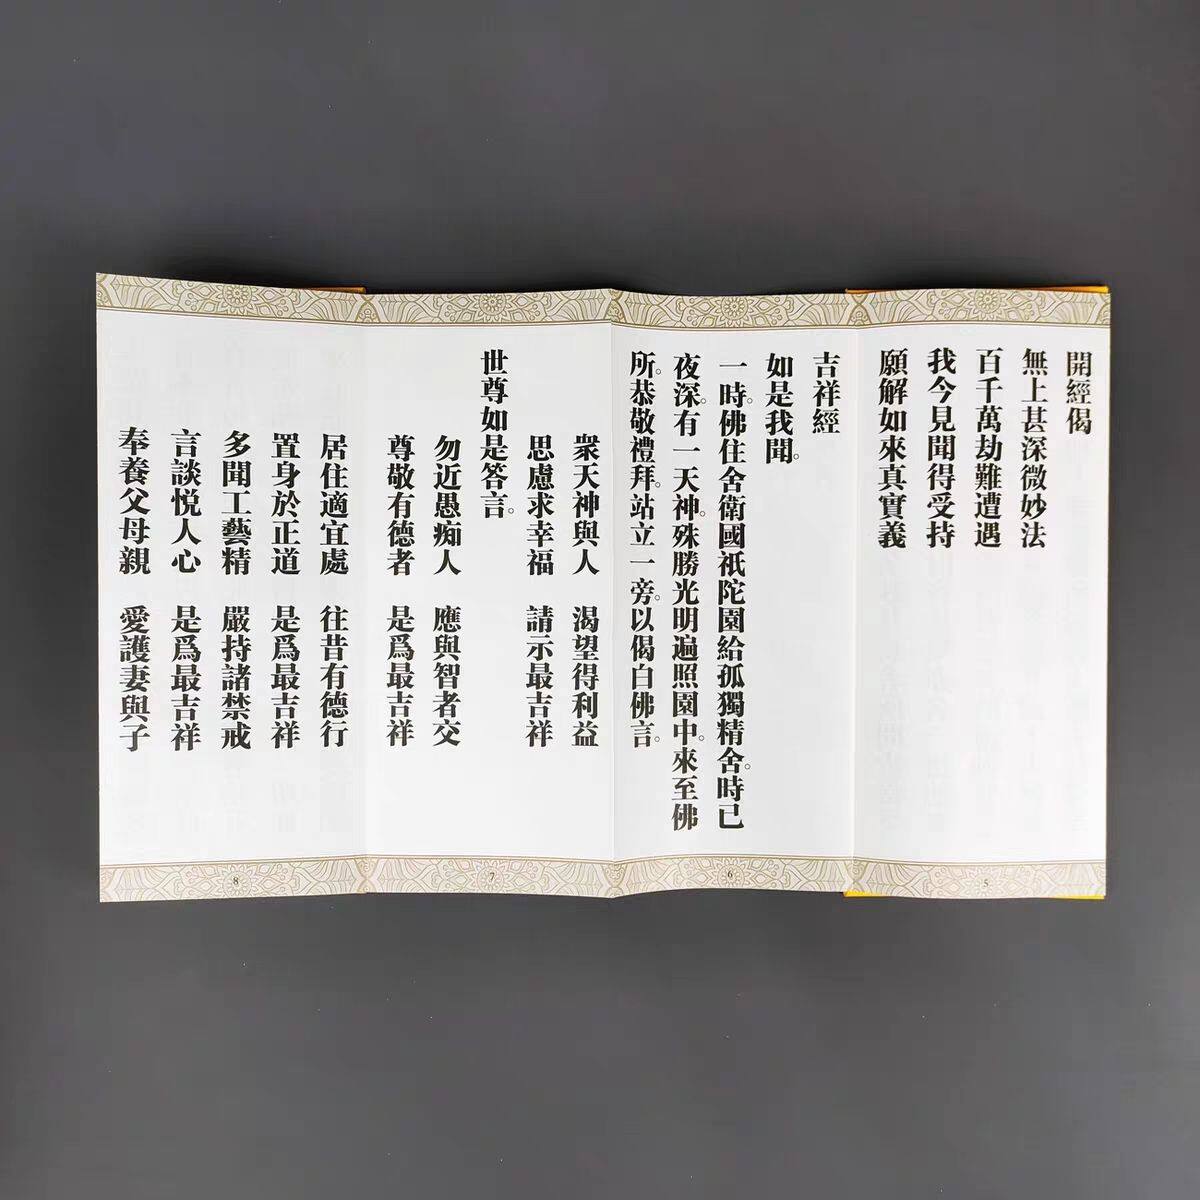 開經偈
無上甚深微妙法
百千萬劫難遭遇
我今見聞得受持
願解如來真實義
5
吉祥經
如是我聞。
一時。佛住舍衛國祇陀園給孤獨精舍。時已
夜深。有一天神。殊勝光明遍照園中。來至佛
所。恭敬禮拜。站立一旁。以偈白佛言。
6
衆天神與人 渴望得利益
思慮求幸福 請示最吉祥
世尊如是答言。
勿近愚痴人 應與智者交
尊敬有德者 是爲最吉祥
7
居住適宜處 往昔有德行
置身於正道 是爲最吉祥
多聞工藝精 嚴持諸禁戒
言談悅人心 是爲最吉祥
奉養父母親 愛護妻與子
8